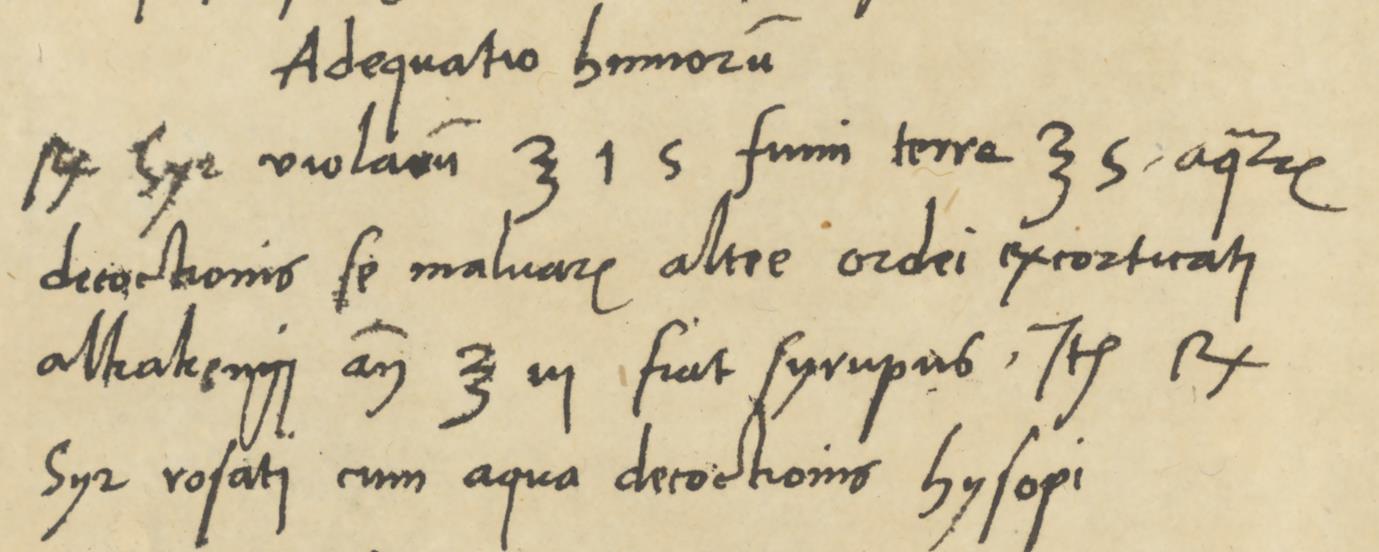 Adequatio humorū
℞ Syr violarū ℥ 1 s fumi terre ℥ s. aqꝝ
decoctionis se maluarꝝ altee ordei excorticati
alkakengij añ ℥ iij fiat syrupus. Itē ℞
Syr rosati cum aqua decoctionis hysopi